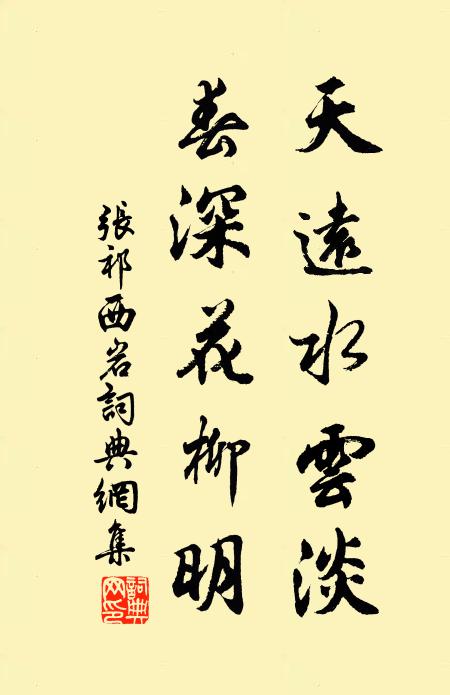 天遠水雲淡
春深花柳明
張祁西岩詞典網集